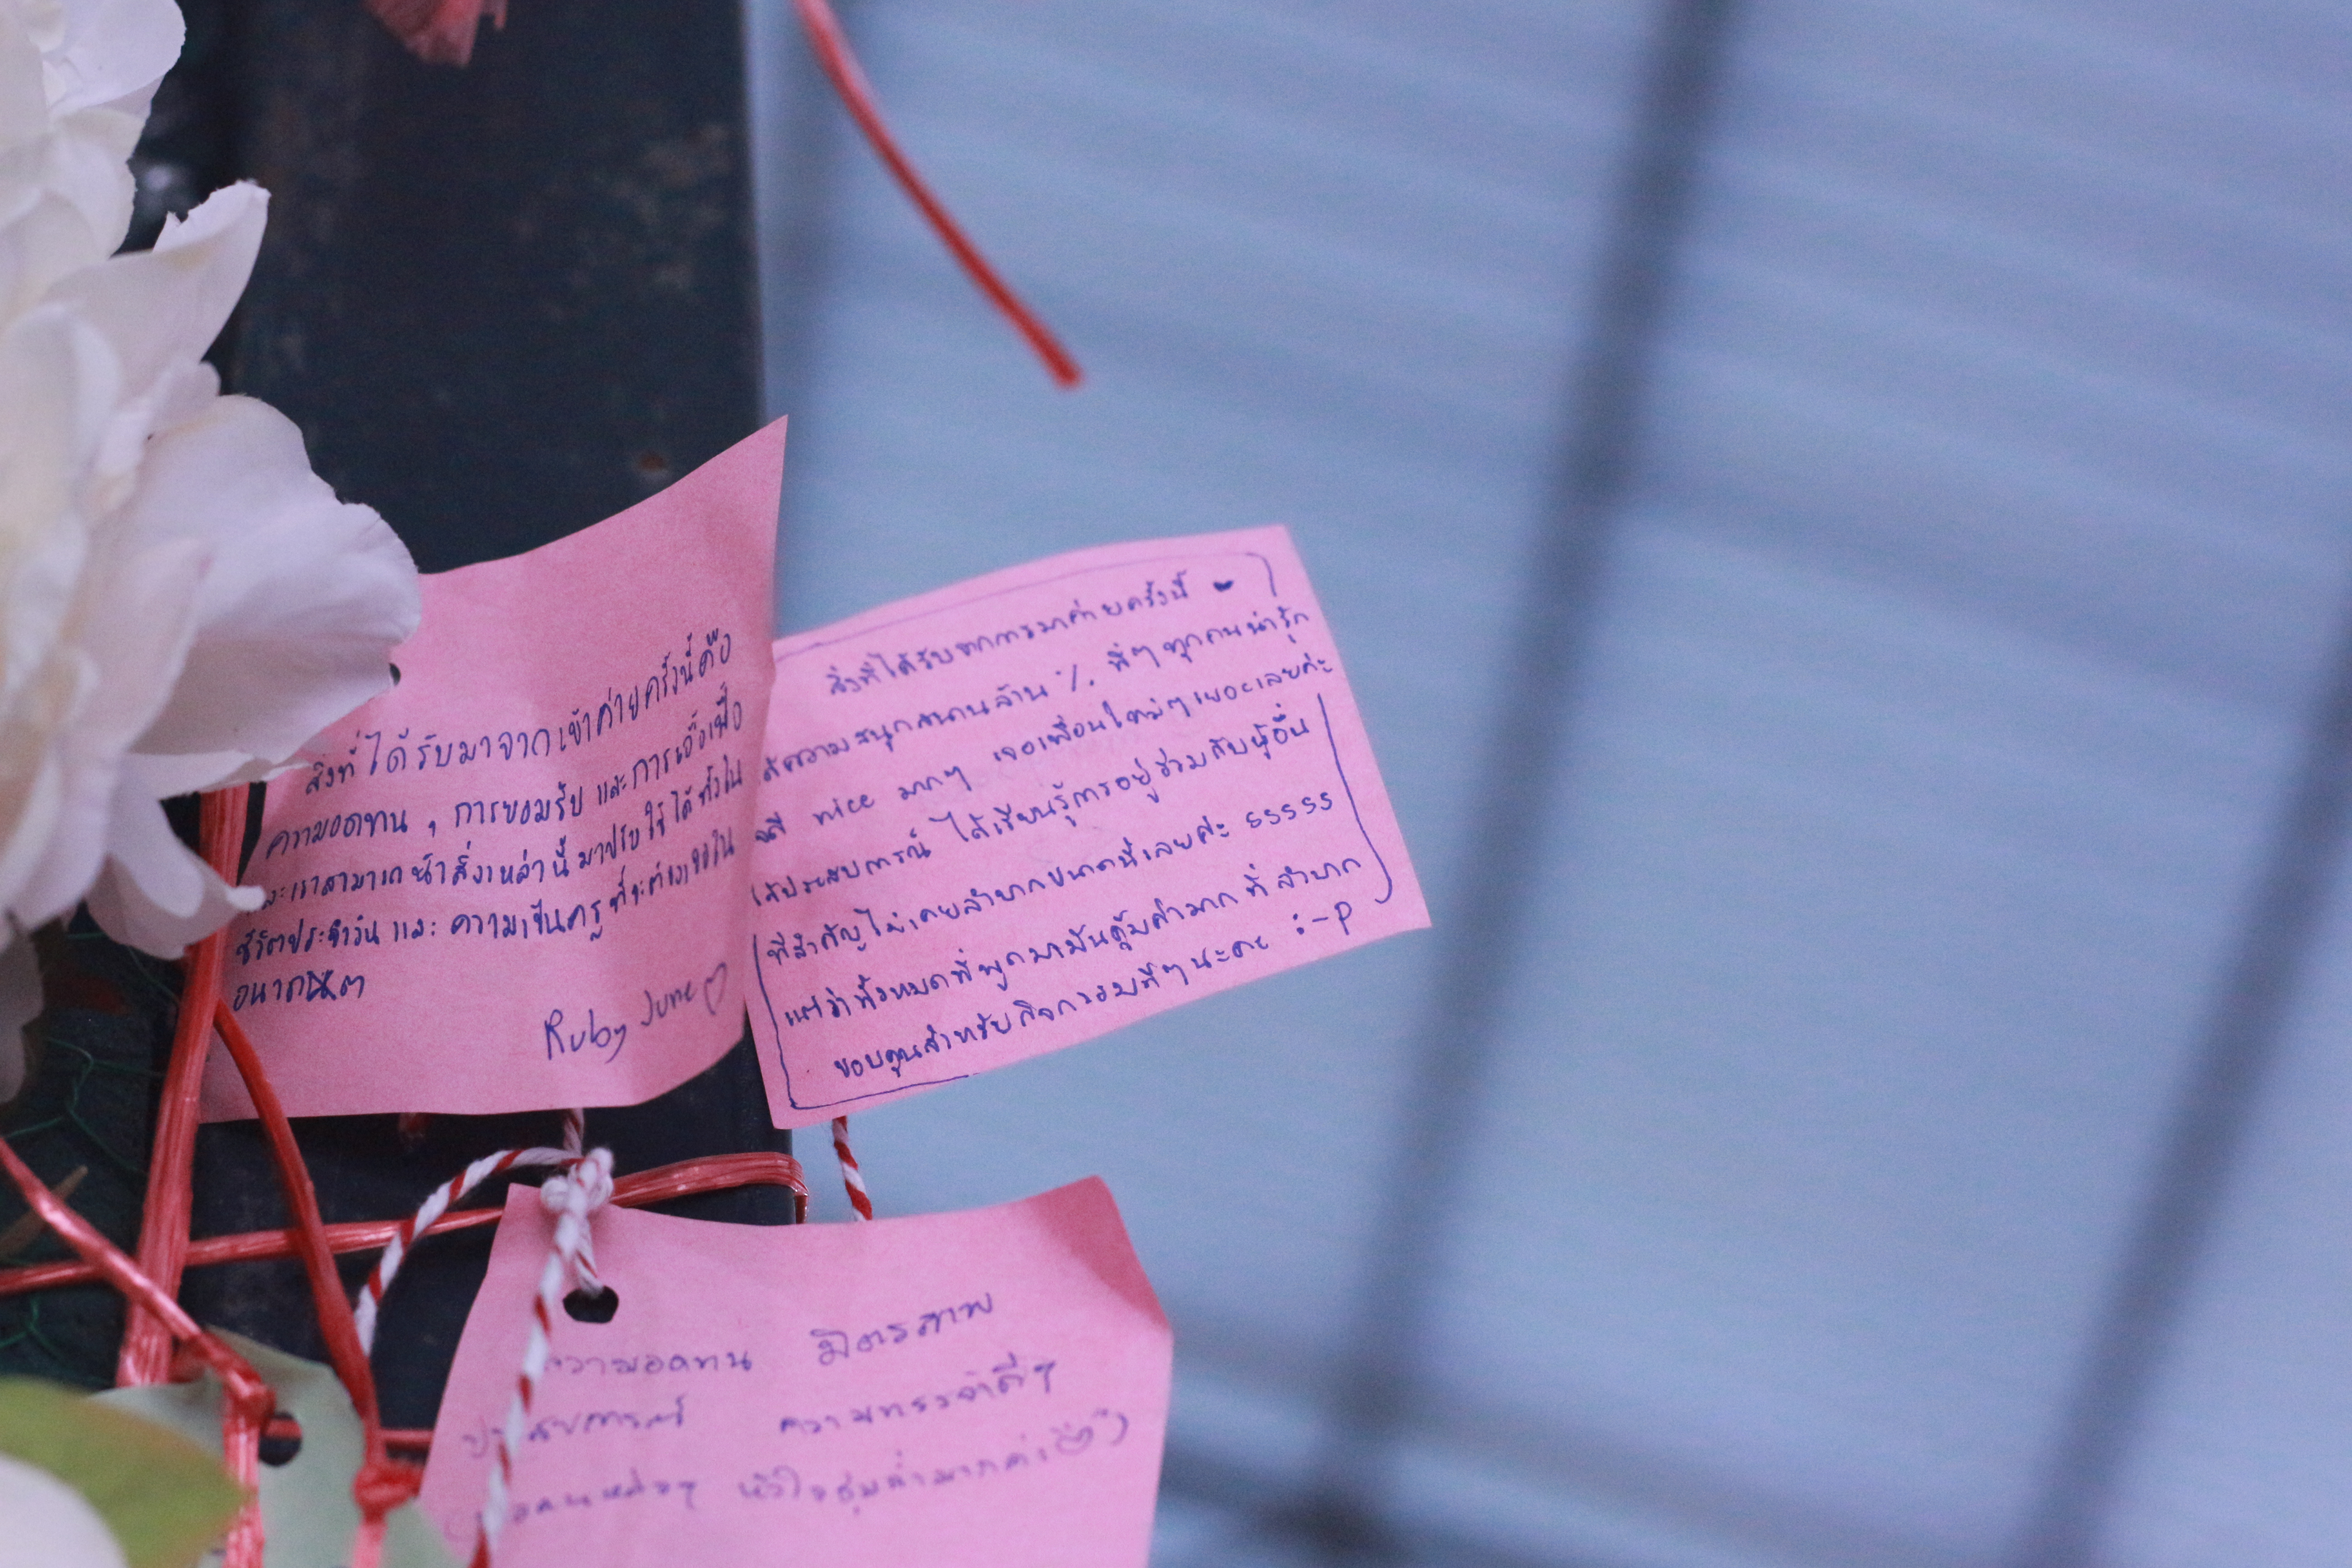 สิ่งที่ได้รับมาจากเข้าค่ายครั้งนี้คือ
ความอดทน , การยอมรับ และการเอื้อเฟื้อ
และเราสามารถนำสิ่งเหล่านี้มาปรับใช้ได้ทั้งใน
ชีวิตประจำวัน และ ความเป็นครูที่จะต้องเจอใน
อนาคต
Ruby June
สิ่งที่ได้รับจากการมาค่ายครั้งนี้
คือความสนุกสนานล้าน % พี่ๆ ทุกคนน่ารัก
nice มากๆ เจอเพื่อนใหม่ๆ เยอะเลยค่ะ
ได้ประสบการณ์ ได้เรียนรู้การอยู่ร่วมกับผู้อื่น
ที่สำคัญไม่เคยลำบากขนาดนี้เลยค่ะ 55555
แต่ว่าทั้งหมดที่พูดมามันคุ้มค่ามากที่ลำบาก
ขอบคุณสำหรับกิจกรรมดีๆ นะคะ :-P
ความอดทน มิตรภาพ
ประสบการณ์ ความทรงจำดีๆ
หัวใจชุ่มฉ่ำมากค่ะ